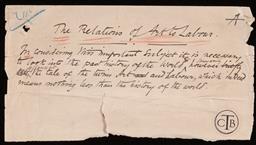 A
The Relations of Art & Labour.
In considering this important subject it is necessary
to look into the past history of the World, & briefly
the tale of the twins Art and Labour, which indeed
means nothing less than the history of the world.
CJB